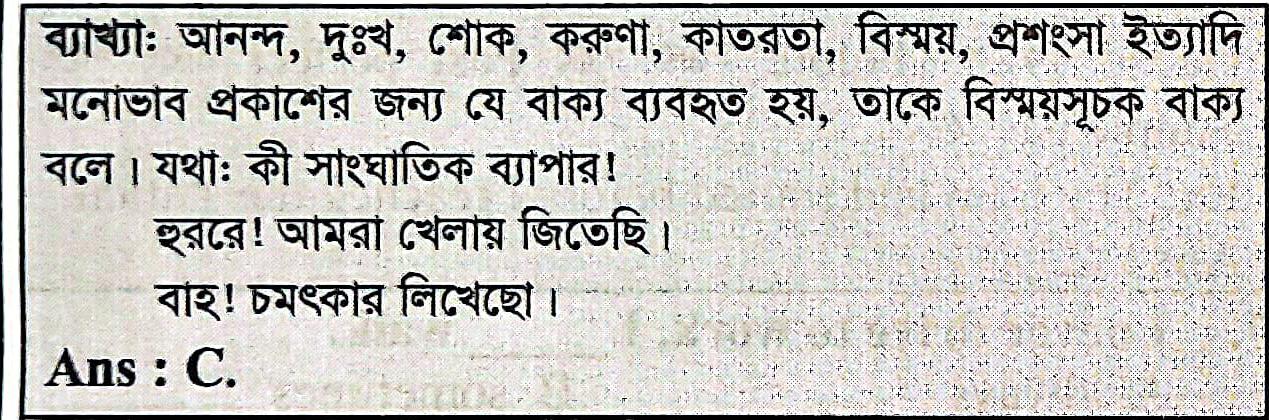 ব্যাখ্যা: আনন্দ, দুঃখ, শোক, করুণা, কাতরতা, বিস্ময়, প্রশংসা ইত্যাদি
মনোভাব প্রকাশের জন্য যে বাক্য ব্যবহৃত হয়, তাকে বিস্ময়সূচক বাক্য
বলে। যথা: কী সাংঘাতিক ব্যাপার!
হুররে! আমরা খেলায় জিতেছি।
বাহ! চমৎকার লিখেছো।
Ans : C.